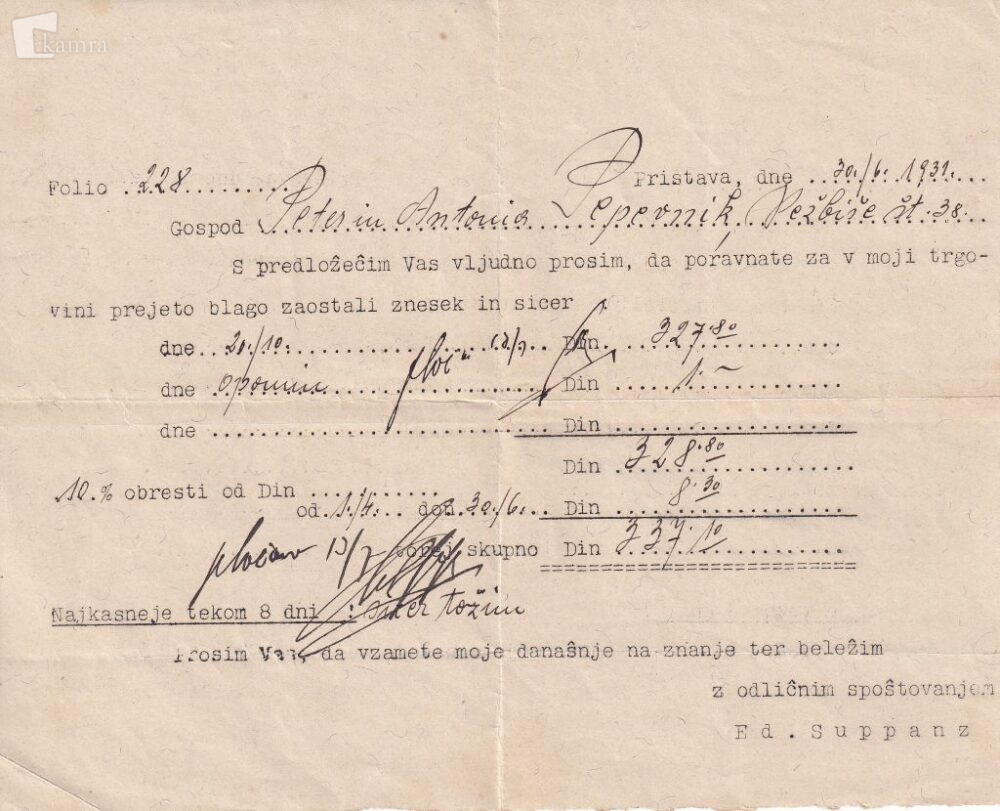 kamra
Folio ..228......... Pristava, dne ..30./6. 1931....
Gospod Peter in Antonia Pepevnik, Vežbiše št. 38...
S predložečim Vas vljudno prosim, da poravnate za v moji trgo-
vini prejeto blago zaostali znesek in sicer
dne..20./10. 13/7 Din. 327.80
dne opomin Din 1.-
dne Din
Din 328.80
10.% obresti od Din
od.1./4... do 30./6. Din 8.30
plačano 13/7 torej skupno Din 337.10
Najkasneje tekom 8 dni : sicer tožim
Prosim Vas, da vzamete moje današnje na znanje ter beležim
z odličnim spoštovanjem
Ed. Suppanz